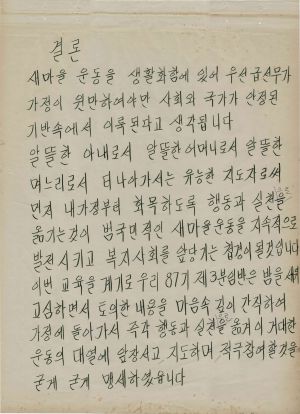 결론
새마을 운동을 생활화함에 있어 우선 급선무가
가정이 원만하여야만 사회와 국가가 안정된
기반속에서 이룩된다고 생각됩니다
알뜰한 아내로서 알뜰한 어머니로서 알뜰한
며느리로서 더나아가서는 유능한 지도자로써
먼저 내가정부터 화목하도록 행동과 실천을
옮기는것이 범국민적인 새마을운동을 지속적으로
발전시키고 복지사회를 앞당기는 첩경이 될것입니다
이번 교육을 계기로 우리 87기 제3분임반은 밤을 새워
고심하면서 토의한 내용을 마음속 깊이 간직하여
가정에 돌아가서 즉각 행동과 실천을 옮겨 이 거대한
운동의 대열에 앞장서고 지도하며 적극참여할것을
굳게 굳게 맹세하였읍니다